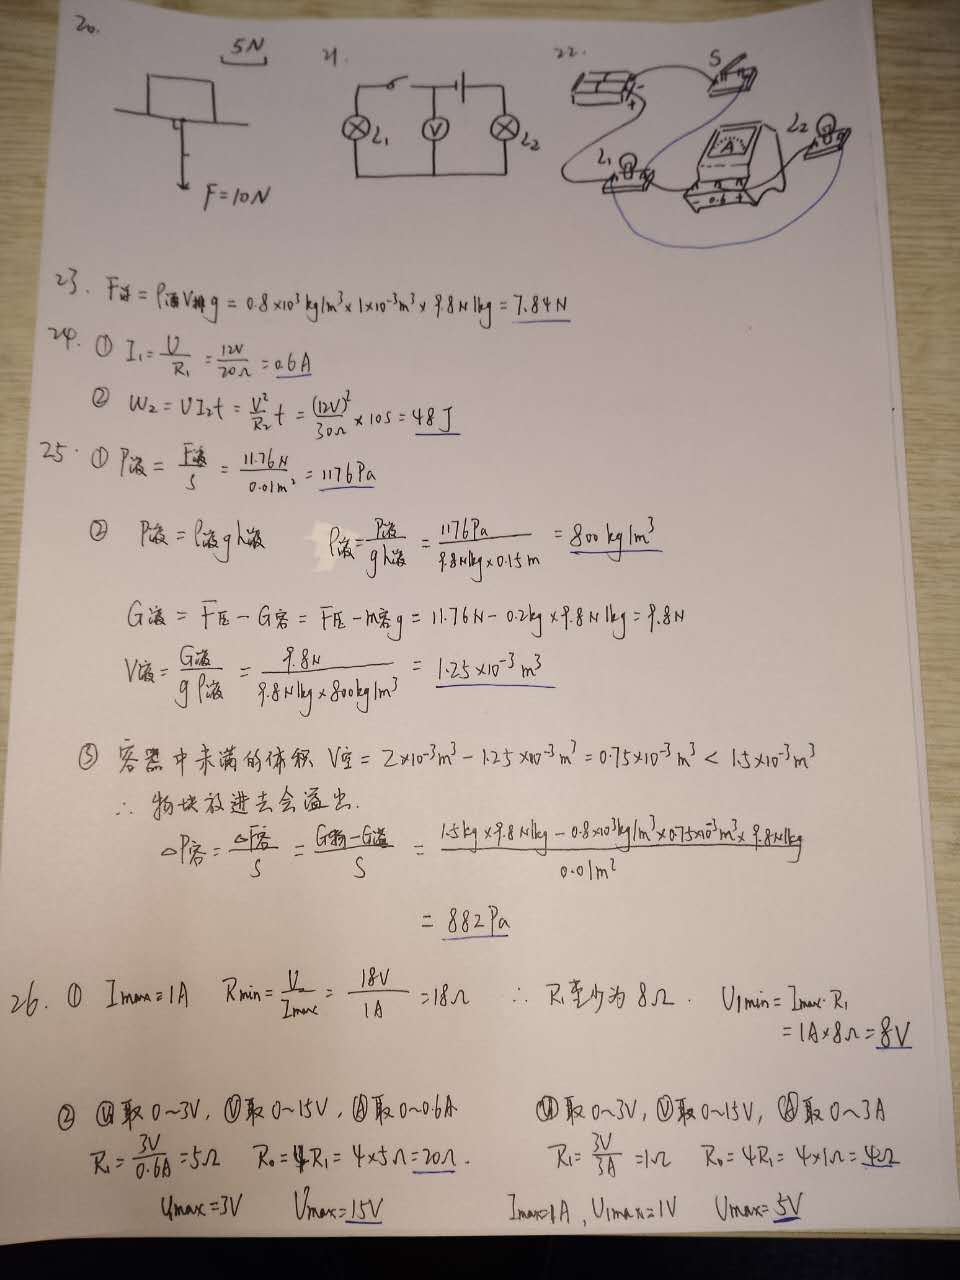 20.
5N
F=10N
21.
L₁
V
L₂
22.
S
A
L₁
L₂
- 0.6 +
23. F浮 = ρ酒V排g = 0.8×10³kg/m³×1×10⁻³m³×9.8N/kg = 7.84N
24. ① I₁ = U/R₁ = 12V/20Ω = 0.6A
② W₂ = UI₂t = U²/R₂ t = (12V)²/30Ω × 10S = 48J
25. ① P液 = F液/S = 11.76N/0.01m² = 1176Pa
② P液 = ρ液gh液 ρ液 = P液/gh液 = 1176Pa/9.8N/kg×0.15m = 800kg/m³
G液 = F压 - G容 = F压 - m容g = 11.76N - 0.2kg×9.8N/kg = 9.8N
V液 = G液/gρ液 = 9.8N/9.8N/kg×800kg/m³ = 1.25×10⁻³m³
③ 容器中未满的体积 V空 = 2×10⁻³m³ - 1.25×10⁻³m³ = 0.75×10⁻³m³ < 1.5×10⁻³m³
∴ 物块放进去会溢出.
△P容 = △F容/S = G物-G溢/S = 1.5kg×9.8N/kg - 0.8×10³kg/m³×0.75×10⁻³m³×9.8N/kg/0.01m²
= 882Pa
26. ① Imax = 1A Rmin = U/Imax = 18V/1A = 18Ω ∴ R₁至少为8Ω. U₁min = Imax·R₁
= 1A×8Ω = 8V
② V₁取0~3V, V取0~15V, A取0~0.6A V₁取0~3V, V取0~15V, A取0~3A
R₁ = 3V/0.6A = 5Ω R₀ = 4R₁ = 4×5Ω = 20Ω. R₁ = 3V/3A = 1Ω R₀ = 4R₁ = 4×1Ω = 4Ω
U₁max = 3V Umax = 15V Imax = 1A, U₁max = 1V Umax = 5V